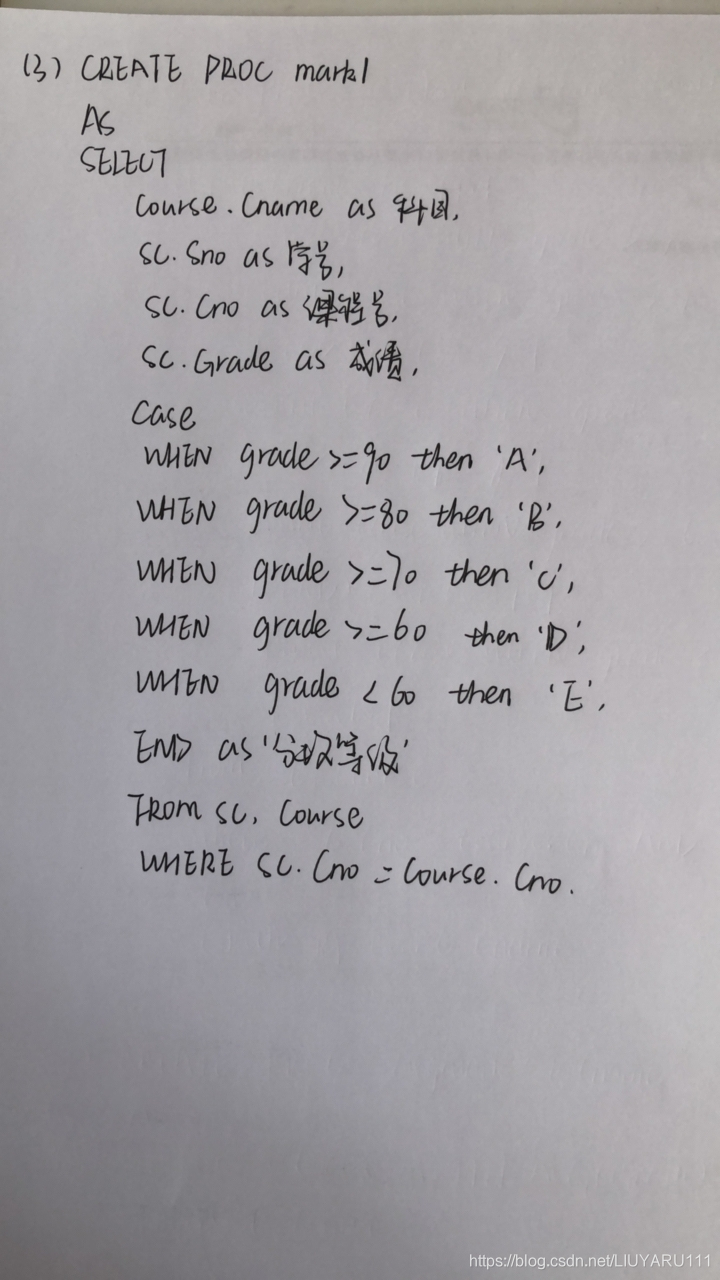 (3) CREATE PROC mark1
AS
SELECT
Course.Cname as 科目,
SC.Sno as 学号,
SC.Cno as 课程号,
SC.Grade as 成绩,
Case
WHEN grade >=90 then 'A',
WHEN grade >=80 then 'B',
WHEN grade >=70 then 'C',
WHEN grade >=60 then 'D',
WHEN grade <60 then 'E',
END as '分数等级'
FROM SC, Course
WHERE SC.Cno = Course.Cno.
https://blog.csdn.net/LIUYARU111